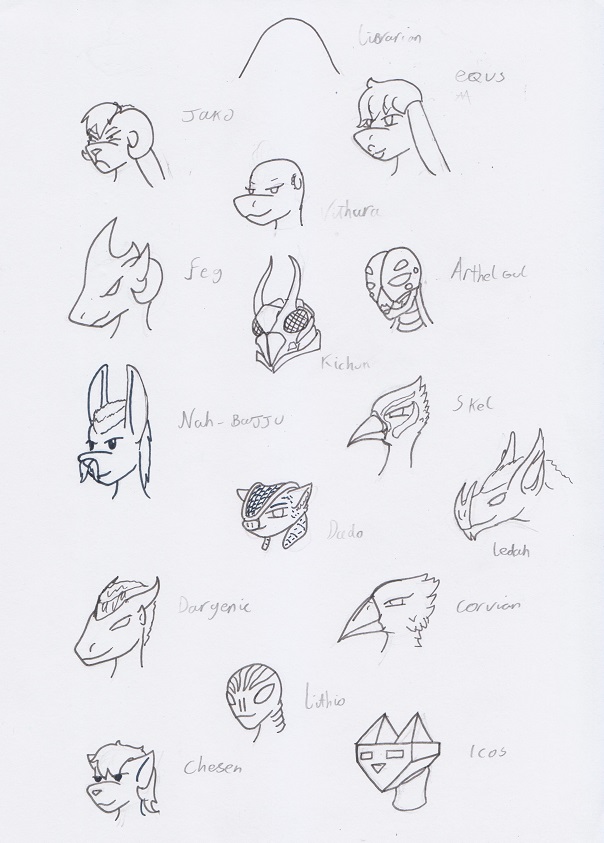 Librarian
EQUS
JAKO
Vithara
feg
Artheloul
Kichun
Skel
Nah-BaJJU
Dædo
Ledah
Dargenic
corvian
Lithio
Chesen
Icos